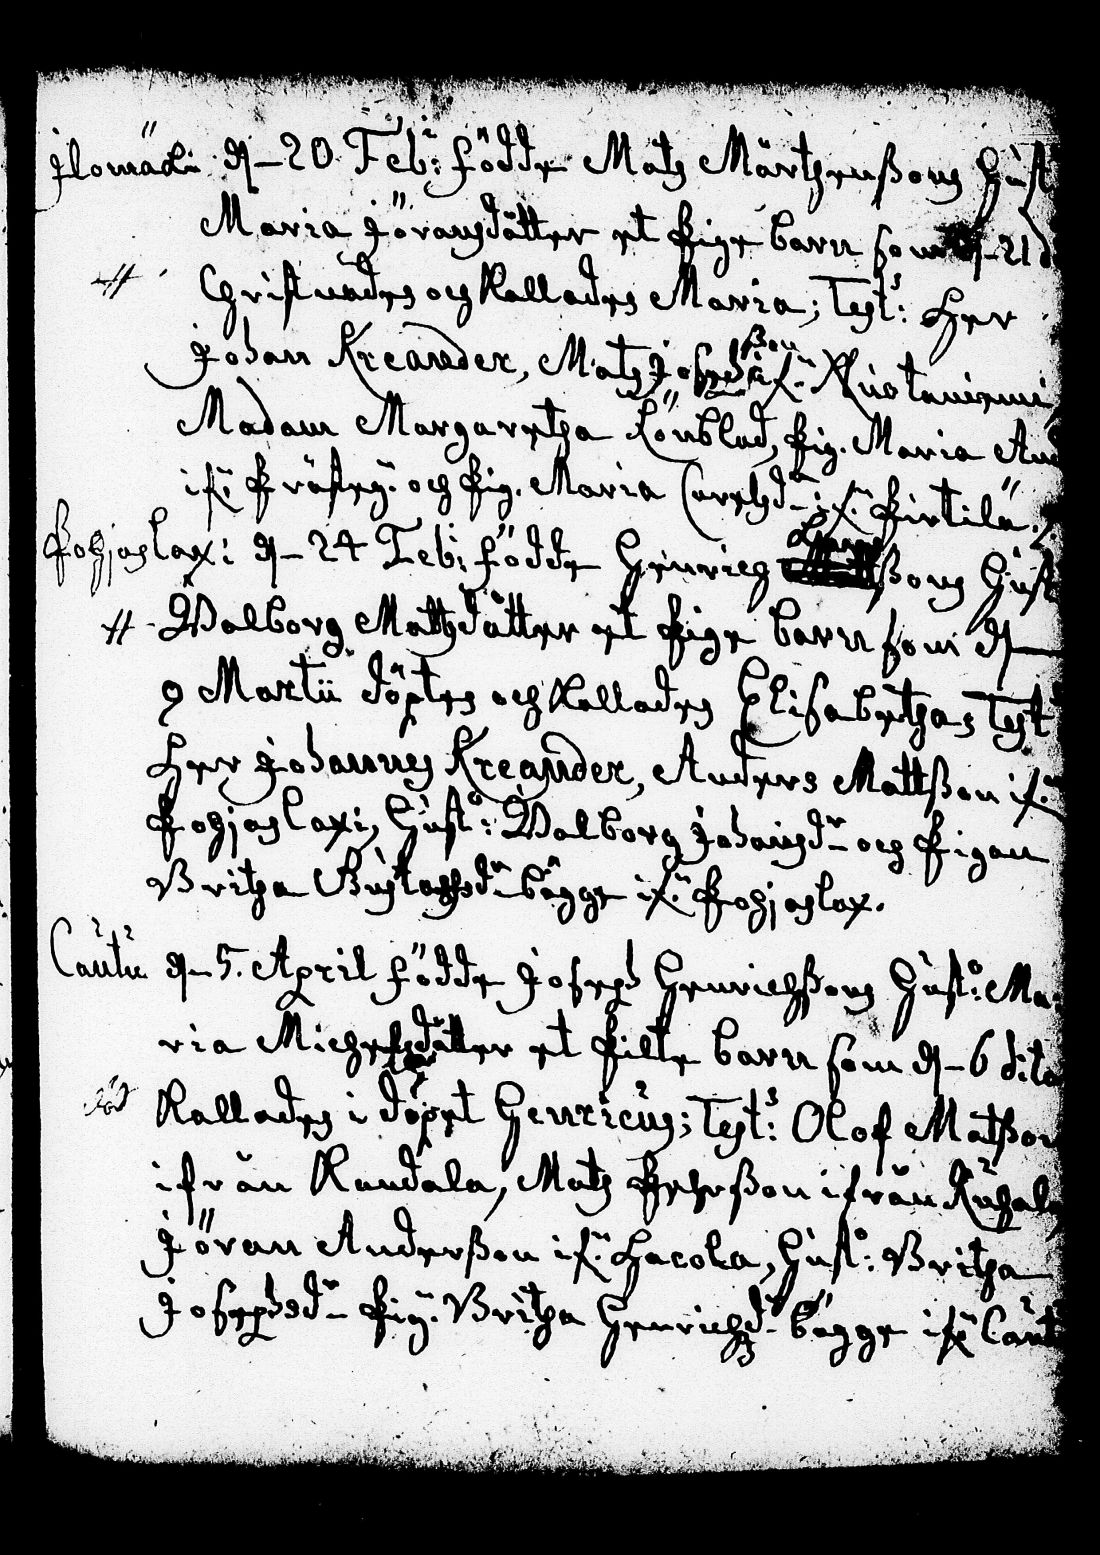 Jlomäki d–20 Feb: födde Mats Mårthenßons Hust
Maria Jöransdåtter et Pige barn som d–21 d
Christnades och Kallades Maria; Test: Herr
Johan Kreander, Mats Josephßon if:
Madam Margaretha Lönblad, Pig. Maria And
if: Pråsteg: och Pig. Maria Carlsdr if: Pirtilä.
Pohjoslax: d–24 Feb: födde Henrich Larßons Hust
Walborg Mattsdåtter et Pige barn som d–
9 Martii döptes och Kallades Elisabetha; Test
Herr Johannes Kreander, Anders Mattßon if:
Pohjoslaxi, Hust: Walborg Johansdr och Pigan
Britha Gustafsdr bägge if: Pohjoslax.
Cautu d–5. April födde Joseph Henrichßons Hust: Ma-
ria Michelsdåtter et Pilte barn som d–6 dito
död Kallades i döpet Henricus; Test: Olof Matßon
ifrån Kandala, Mats Pehrßon ifrån Ruhala
Jöran Anderßon if: Hacola, Hust: Britha
Josephsdr Pig: Britha Henrichsdr bägge if: Caut